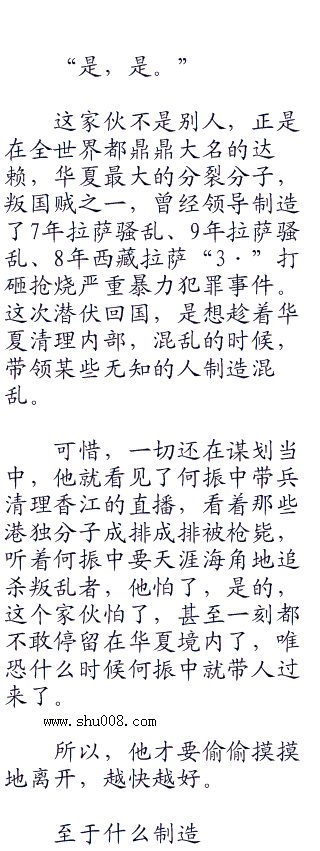 “是，是。”
这家伙不是别人，正是
在全世界都鼎鼎大名的达
赖，华夏最大的分裂分子，
叛国贼之一，曾经领导制造
了7年拉萨骚乱、9年拉萨骚
乱、8年西藏拉萨“3·”打
砸抢烧严重暴力犯罪事件。
这次潜伏回国，是想趁着华
夏清理内部，混乱的时候，
带领某些无知的人制造混
乱。
可惜，一切还在谋划当
中，他就看见了何振中带兵
清理香江的直播，看着那些
港独分子成排成排被枪毙，
听着何振中要天涯海角地追
杀叛乱者，他怕了，是的，
这个家伙怕了，甚至一刻都
不敢停留在华夏境内了，唯
恐什么时候何振中就带人过
来了。
www.shu008.com
所以，他才要偷偷摸摸
地离开，越快越好。
至于什么制造